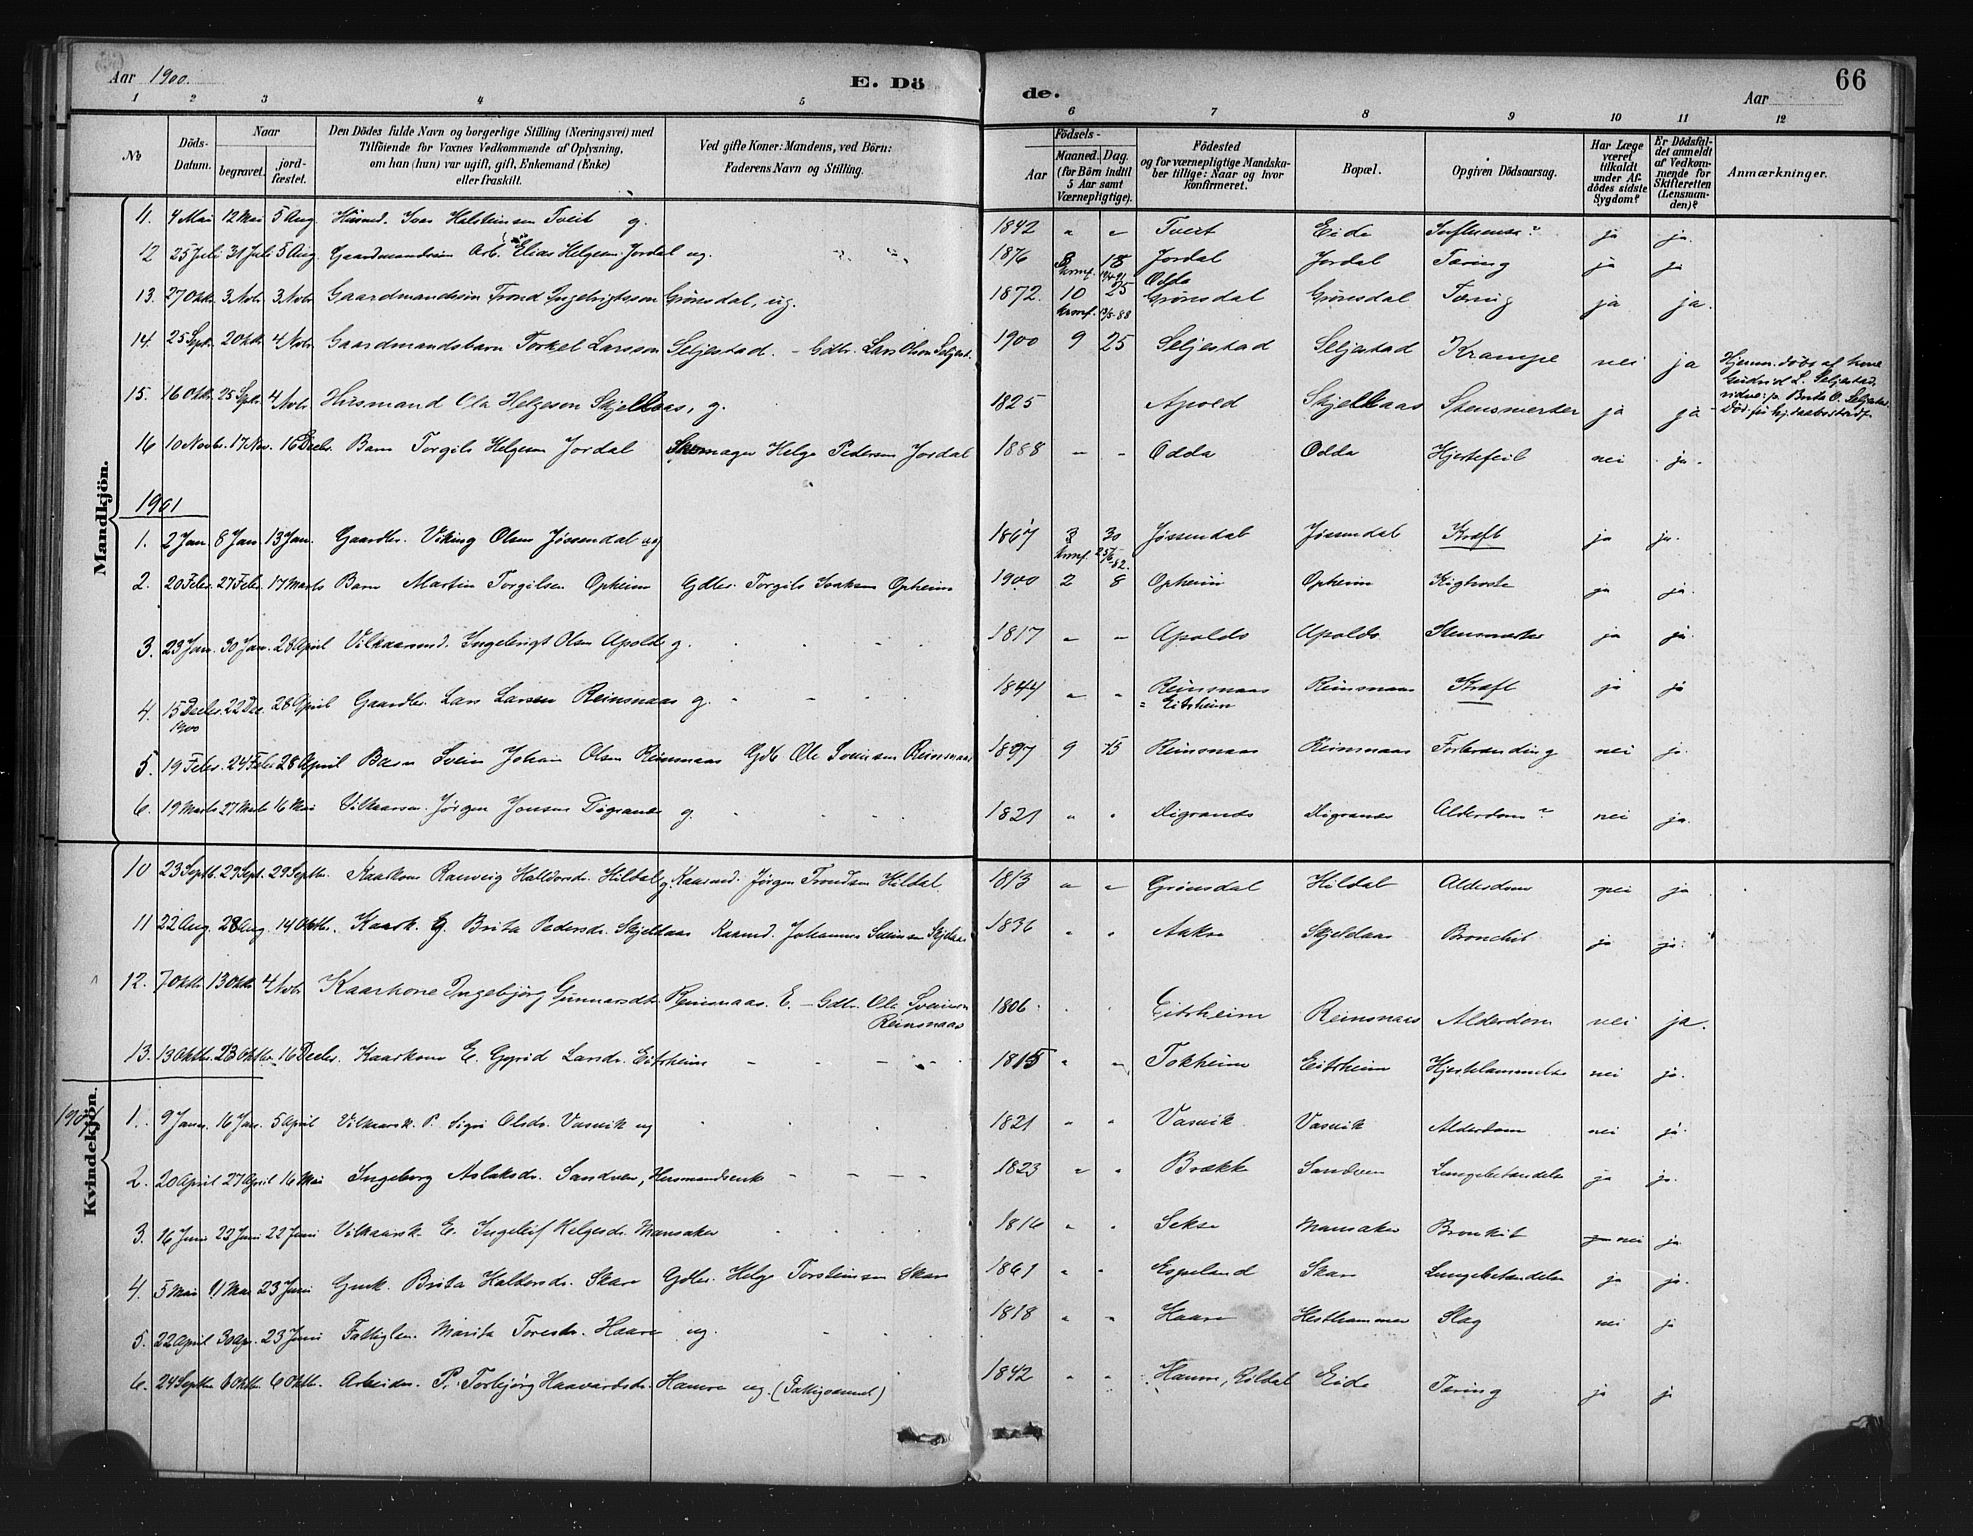 Aar 1900.
E. Dö
de.
66
Aar
1 2 3 4 5 6 7 8 9 10 11 12
№
Döds-Datum.
Naar
begravet.
jord-fæstet.
Den Dödes fulde Navn og borgerlige Stilling (Næringsvei) med
Tilföiende for Voxnes Vedkommende af Oplysning,
om han (hun) var ugift, gift, Enkemand (Enke)
eller fraskilt.
Ved gifte Koner: Mandens, ved Börn:
Faderens Navn og Stilling.
Födsels-
Aar
Maaned. Dag.
(for Börn indtil
5 Aar samt
Værnepligtige).
Födested
og for værnepligtige Mandska-
ber tillige: Naar og hvor
konfirmeret.
Bopæl.
Opgiven Dödsaarsag.
Har Læge
været
tilkaldt
under Af-
dödes sidste
Sygdom?
Er Dödsfal-
det anmeldt
af Vedkom-
mende for
Skifteretten
(Lensman-
den)?
Anmærkninger.
Mandkjön.
11. 4 Mai 12 Mai 5 Aug. Husmd. Ivar Halsteinsen Tveit g. 1842 " " Tveit Eide Influensa? ja ja.
12 25 Juli 31 Juli 5 Aug. Gaardmandssøn Arb. Elias Helgesen Jordal ug. 1876 8 18 Jordal Jordal Tæring ja ja
konf. 19/4-91 Odda
13. 27 Okt. 3 Nvbr. 3. Nvbr. Gaardmandssøn Trond Ingebrigtsson Grønsdal, ug. 1872. 10 25 Grønsdal Grønsdal Tæring ja ja.
konf. 13/5-88
14. 25 Sept. 2 Okt. 4 Nvbr. Gaardmandsbarn Torkel Larsson Seljestad. - Gdbr. Lars Olsen Seljest. 1900 9 25 Seljestad Seljestad Krampe nei ja Hjemmedøbt af kone
Gudrid L. Seljestad,
15. 16 Okt. 25 Sptr. 4 Nvbr. Husmand Ola Helgeson Skjellaas, g. 1825 Apold Skjellaas Stensmerter ja ja
16 10 Novbr. 17 Nov. 16 Decbr. Barn Torgils Helgesen Jordal Skomager Helge Pedersen Jordal 1888 - - Odda Odda Hjertefeil nei ja.
1901
1. 2 Jan 8 Jan. 13 Jan. Gaardbr. Viking Olsen Jøssendal ug 1867 3 30 Jøssendal Jøssendal Kræft ja ja.
konf. 25/6-82.
2. 20 Febr. 27 Febr. 17 Marts Barn Martin Torgilsen Opheim Gdbr. Torgils Isaksen Opheim 1900 2 8 Opheim Opheim Kighoste ja ja.
3. 23 Jan. 30 Jan. 28 April Vilkaarsmd. Ingebrigt Olsen Apold g. 1817 - - Apolds Apolds. Stensmerter ja ja.
4. 15 Decbr. 22 Dec. 28 April Gaardbr. Lars Larsen Reinsnaas g. 1844 " " Reinsnaas Reinsnaas Kræft ja ja
1900 = Eitrheim
5. 19 Febr. 24 Febr. 28 April Barn Svein Johan Olsen Reinsnaas Gdb Ole Sveinsen Reinsnaas 1897 9 15 Reinsnaas Reinsnaas Forbrænding nei ja.
6. 19 Marts 27 Marts 16 Mai Vilkaarsm. Jørgen Jonsen Digranes g. 1821 " " Digranes Digranes Alderdom? nei ja.
Kvindekjön.
10 23 Septb. 29 Sept. 29 Septbr. Kaarkone Ranveig Halldorsdr. Hildal g Kaarmd. Jørgen Trondsen Hildal 1813 " " Grønsdal Hildal Alderdom nei ja
11 22 Aug. 28 Aug. 14 Oktbr. Kaark. G. Brita Pedersdr. Skjeldaas Kaarmd. Johannes Sveinsen Skjeldaas 1836 " " Aakre Skjeldaas Bronchit ja ja.
12. 7 Oktb. 13 Okt. 4 Nvbr. Kaarkone Ingebjørg Gunnarsdtr. Reinsnaas. E. - Gdbr. Ole Sveinson
Reinsnaas 1806 Eitrheim Reinsnaas Alderdom nei ja.
13. 13 Oktbr. 23 Oktbr. 16 Decbr. Kaarkone E. Gyrid Larsdr. Eitrheim 1815 " " Tokheim Eitrheim Hjertelammelse nei ja.
1901
1. 9 Janr. 16 Jan. 5 April Vilkaarsk. P. Sigri Olsdr. Vasvik ug 1821 " " Vasvik Vasvik Alderdom nei ja.
2. 20 April 27 April 16 Mai Ingeborg Aslaksdr. Sandven, Husmandsenke 1823 " " Brække Sandven Lungebetændelse ja ja.
3. 16 Juni 22 Juni 22 Juni Vilkaarsk. E. Ingeleif Helgesdr. Mansaker 1816 " " Sekse Mansaker Bronkit nei ja
4. 5 Mai 11 Mai 23 Juni Gmk. Brita Haldorsdr. Skare Gdbr. Helge Torsteinsen Skare 1861 " " Espeland Skare Lungebetændelse ja ja.
5. 22 April 30 Apr. 23 Juni Fattiglem. Marita Toresdr. Haare ug. 1818 " " Haare Hesthammer Slag nei ja
6. 24 Septbr. 6 Oktbr. 6 Oktbr. Arbeider. P. Torbjørg Haavardsdr. Hamre ug. (Fattiglem) 1842 " " Hamre, Kildal Eide Tæring ja ja